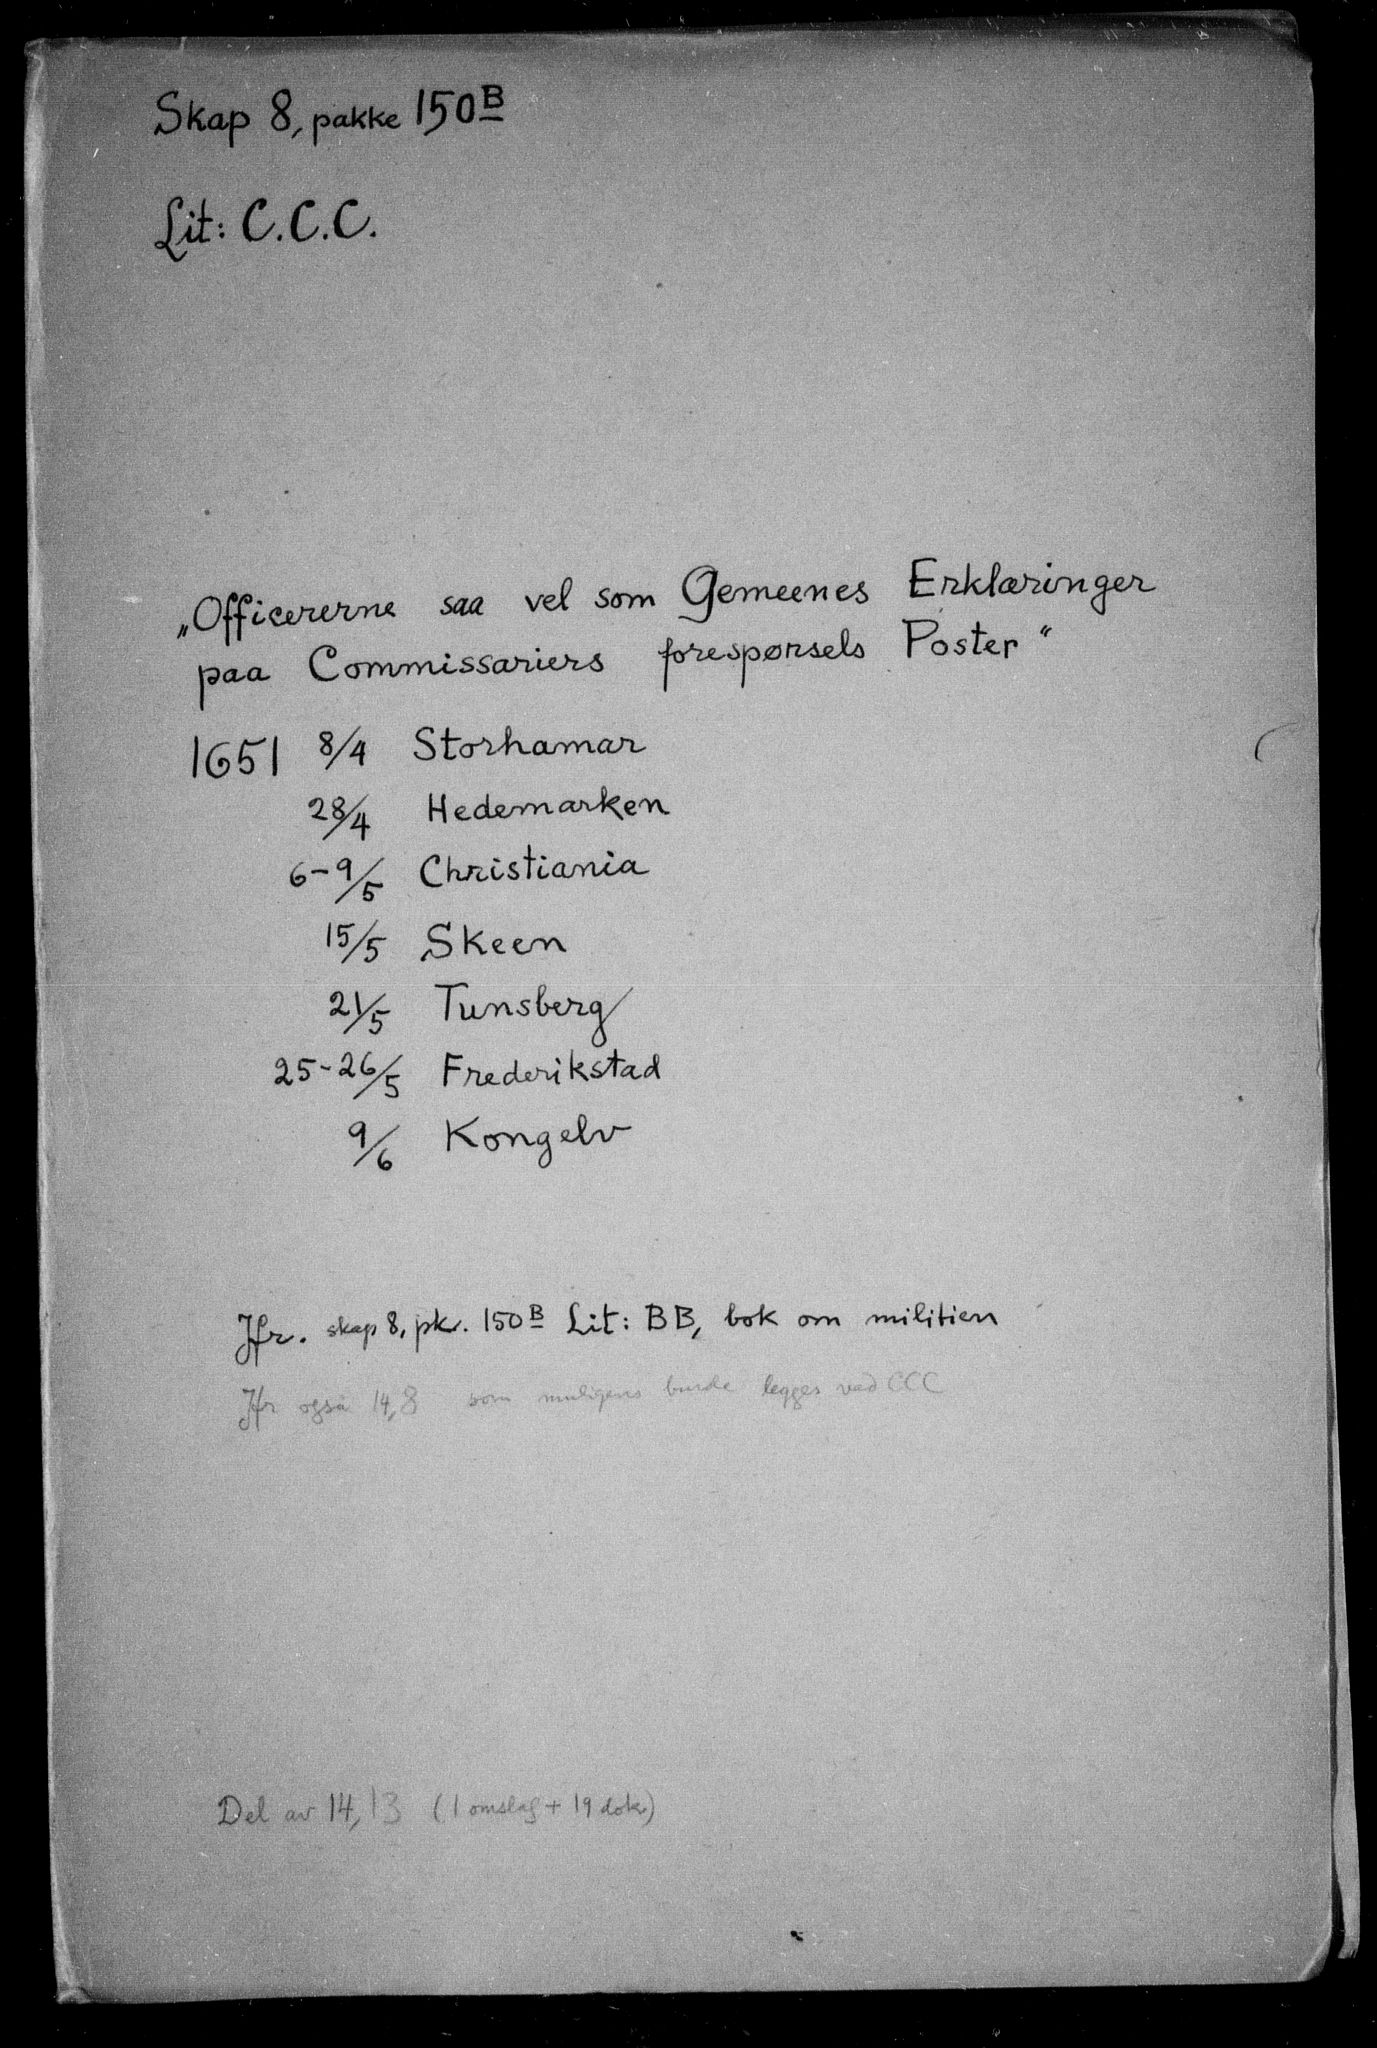 Skap 8, pakke 150B
Lit: C.C.C.
„Officererne saa vel som Gemeenes Erklæringer
paa Commissariers forespørsels Poster“
1651 8/4 Storhamar
28/4 Hedemarken
6-9/5 Christiania
15/5 Skeen
21/5 Tunsberg
25-26/5 Frederikstad
9/6 Kongelv
Jfr. skap 8, pk. 150B Lit: BB, bok om militien
Jfr også 14,8 som muligens burde legges ved CCC
Del av 14,13 (1 omslag + 19 dok)